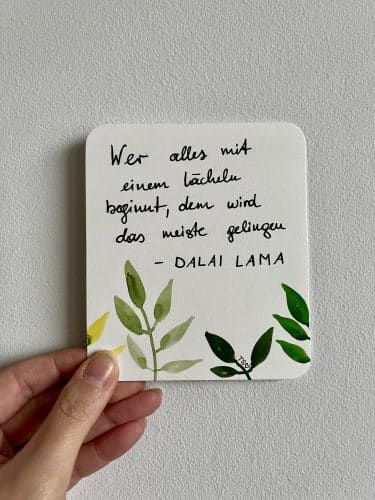 Wer alles mit
einem Lächeln
beginnt, dem wird
das meiste gelingen
- DALAI LAMA